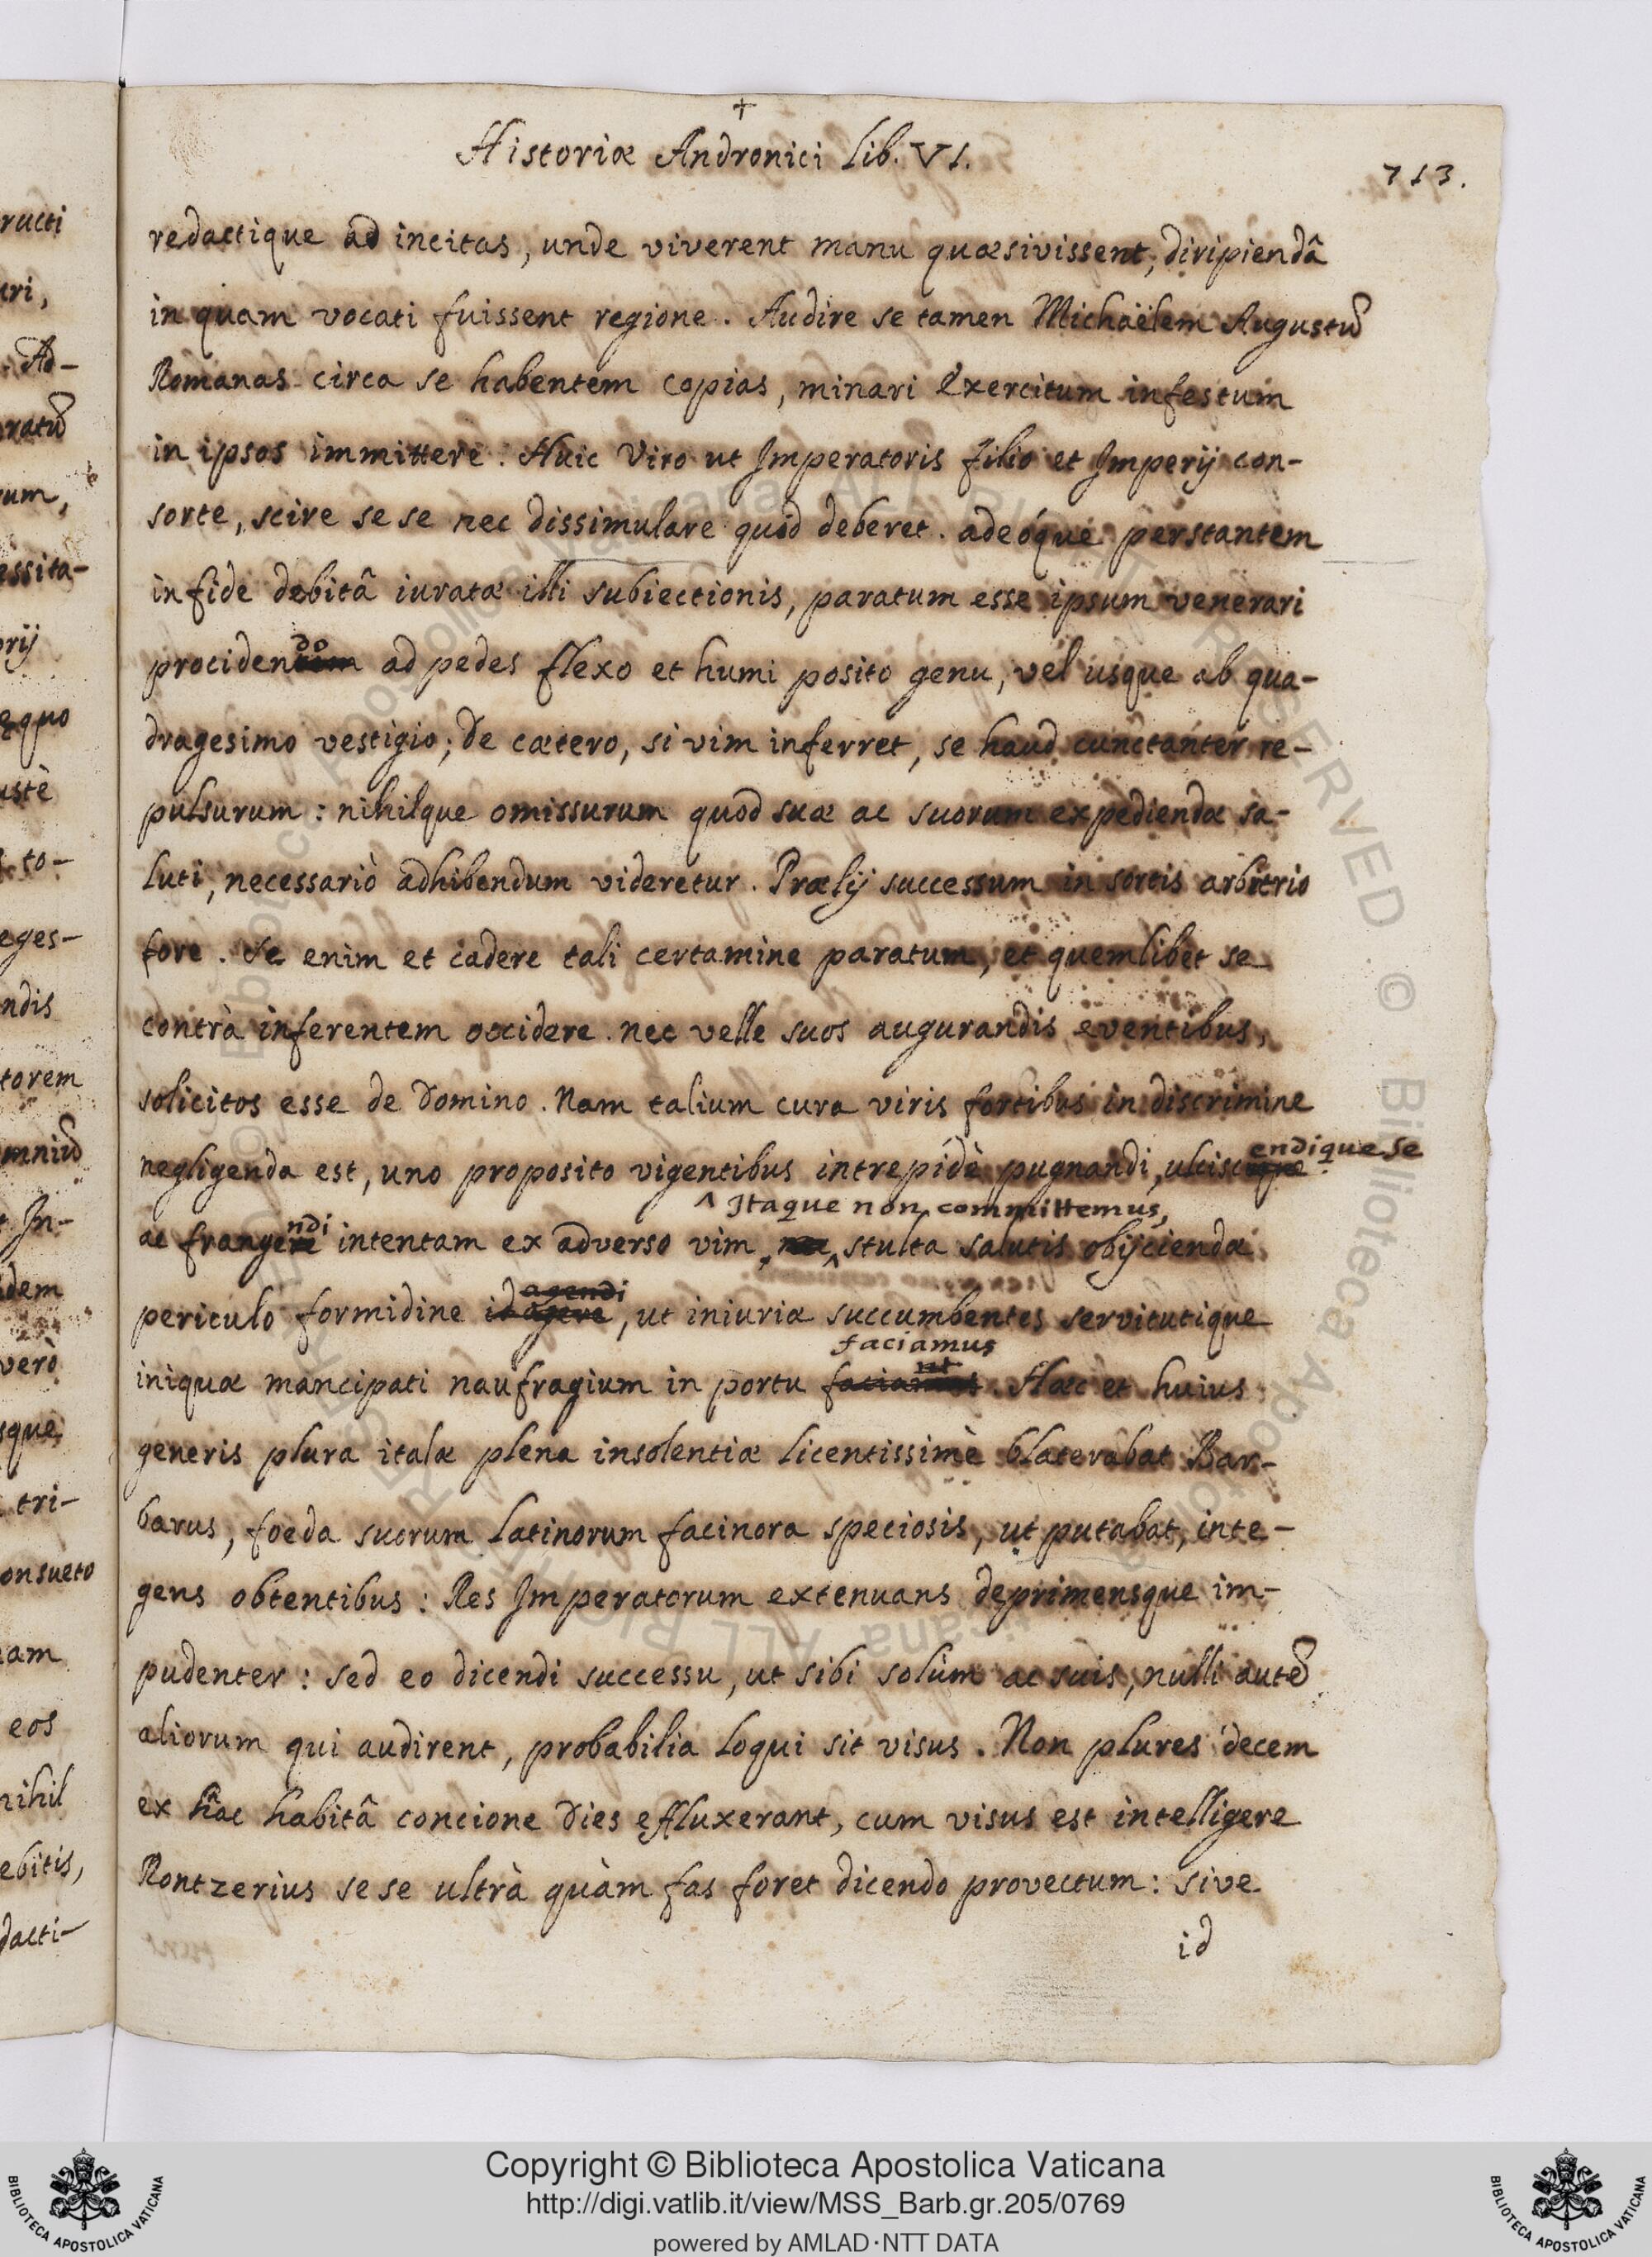 Historiæ Andronici Lib. VI.
713.
redactique ad incitas, unde viverent manu quæsivissent, diripiendâ
in quam vocati fuissent regione. Audire se tamen Michaëlem Augustũ
Romanas circa se habentem copias, minari Exercitum infestum
in ipsos immittere. Huic Viro ut Imperatoris filio et Imperij con-
sorte, scire se se nec dissimulare quod deberet. adeóque perstantem
in fide debitâ iuratæ illi subiectionis, paratum esse ipsum venerari
procidendo ad pedes flexo et humi posito genu, vel usque ab qua-
dragesimo vestigio; De cætero, si vim inferret, se haud cunctanter re-
pulsurum: nihilque omissurum quod suæ ac suorum expediendæ sa-
luti, necessariò adhibendum videretur. Prælij successum in sortis arbitrio
fore. Se enim et cadere tali certamine paratum, et quemlibet se
contrà inferentem occidere. nec velle suos augurandis eventibus,
solicitos esse de Domino. Nam talium cura viris fortibus in discrimine
negligenda est, uno proposito vigentibus intrepidè pugnandi, ulciscendique se
^ Itaque non committemus,
ac frangendi intentam ex adverso vim, stulta salutis obijciendæ
agendi
periculo formidine id agere, ut iniuriæ succumbentes servitutique
faciamus
iniquæ mancipati naufragium in portu. Hæc et huius
generis plura italæ plena insolentiæ licentissimè blaterabat Bar-
barus, foeda suorum Latinorum facinora speciosis, ut putabat, inte-
gens obtentibus: Res Imperatorum extenuans deprimensque im-
pudenter: sed eo dicendi successu, ut sibi solùm ac suis, nulli autẽ
aliorum qui audirent, probabilia loqui sit visus. Non plures decem
ex hâc habitâ concione Dies effluxerant, cum visus est intelligere
Rontzerius se se ultrà quàm fas foret dicendo provectum: sive
id
ructi
uri,
Ad-
ratũ
um,
essita-
orij
ęquo
ustè
to-
eges-
ndis
torem
mniũ
In-
dem
verò
sque
tri-
onsueto
am
eos
nihil
ebitis,
dacti-
Copyright © Biblioteca Apostolica Vaticana
http://digi.vatlib.it/view/MSS_Barb.gr.205/0769
powered by AMLAD·NTT DATA
BIBLIOTECA APOSTOLICA VATICANA
BIBLIOTECA APOSTOLICA VATICANA